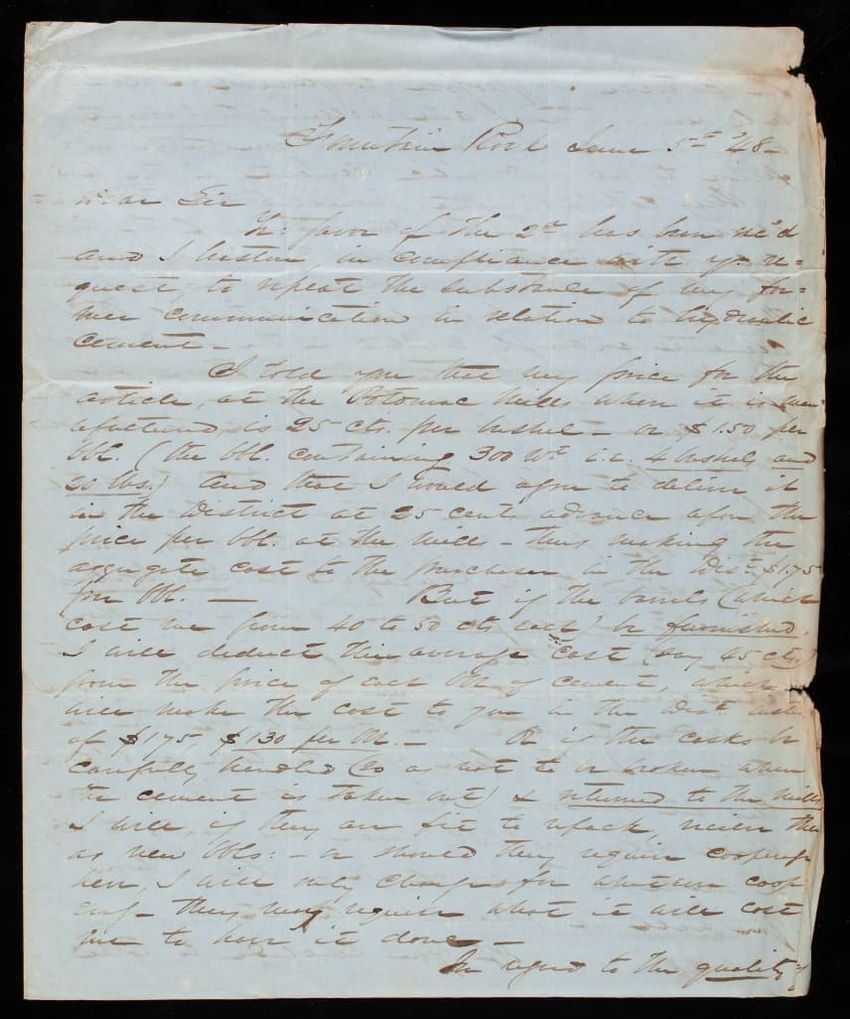 Fountain Rock June 5th '48-
Dear Sir
Yr: favor of the 2d has been rec'd
and I hasten, in compliance with yr. re=
quest, to repeat the substance of my for=
mer communication in relation to hydraulic
cement-
I told you that my price for the
article, at the Potomac Mills where it is man
ufactured, is 25 cts. per bushel - or $1.50 per
bbl. (the bbl. containing 300 wt i.e. 4 bushels and
20 lbs.) and that I would agree to deliver it
in the District at 25 cents advance upon the
price per bbl. at the mills - thus making the
aggregate cost to the purchaser in the Dist. $1.75
per bbl. — But if the barrels (which
cost me from 40 to 50 cts each) be furnished,
I will deduct their average cost (say 45 cts.)
from the price of each bbl. of cement, which
will make the cost to you in the Dist. instead
of $175, $130 per bbl. - Or if the casks be
carefully handled (so as not to be broken when
the cement is taken out) & returned to the mills,
I will, if they are fit to repack, receive them
as new bbls: - or should they require cooperage
here, I will only charge for whatever coop
ering they may require what it will cost
me to have it done -
In regard to the quality of